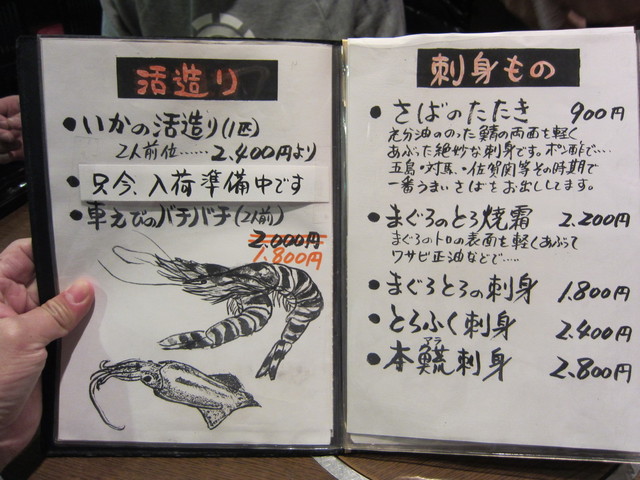 活造り
●いかの活造り(1匹)
2人前位……2.400円より
●只今、入荷準備中です
●車えびのバチバチ(2人前)
2.000円
1.800円
刺身もの
●さばのたたき 900円
充分油ののった鯖の両面を軽く
あぶった絶妙な刺身です。ポン酢で…
五島・対馬・佐賀関等その時期で
一番うまいさばをお出ししてます。
●まぐろのとろ焼霜 2.200円
まぐろのトロの表面を軽くあぶって
ワサビ正油などで……
●まぐろとろの刺身 1.800円
●とらふく刺身 2.400円
アラ
●本鯍刺身 2.800円